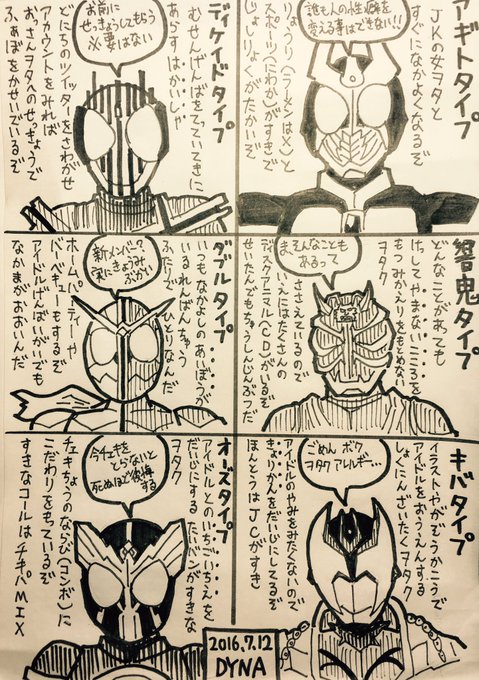 アギトタイプ
誰も人の性癖を
変える事はできない!!
JKの女ヲタと
すぐになかよくなるぞ
りょうり(ラーメンは×)と
スポーツ(にわか)がすきで
じょしりょくがたかいぞ
ディケイドタイプ
お前に
せっきょうしてもらう
必要はない
むせんげんばをてっていてきに
あらすはかいしゃ
どにちのツイッターをさわがせ
アカウントをみれば
おっさんヲタへのせっきょうで
ふぁぼをかせいでいるぞ
響鬼タイプ
まぁそんなことも
あるって
どんなことがあっても
けっしてやまないこころを
もつみかえりをもとめない
ヲタク
ささえているので
いえにはたくさんの
ディスクアニマル(CD)がいるぞ
せいたんでもちゅうしんじんぶつだ
ダブルタイプ
新メンバー
実にきょうみ
ぶかい
いつもなかよしのあいぼうが
いるれんばんちゅう
ふたりでひとりなんだ
ホームパーティーや
バーベキューもするぞ
アイドルげんばいがいでも
なかまがおおいんだ
キバタイプ
ごめん ボク
ヲタク アレルギー…
イラストやがぞうかこうで
アイドルをおうえんする
しょくにんざいたくヲタク
アイドルのやみをみたくないので
きょりかんをだいじにしてるぞ
ほんとうはJCがすき
オーズタイプ
今チェキを
とらないと
死ぬほど後悔
する
アイドルとのいちごいちえを
だいじにするたいバンがすきな
ヲタク
チェキちょうのならび(コンボ)に
こだわりをもっているぞ
すきなコールはチキパMIX
2016.7.12
DYNA